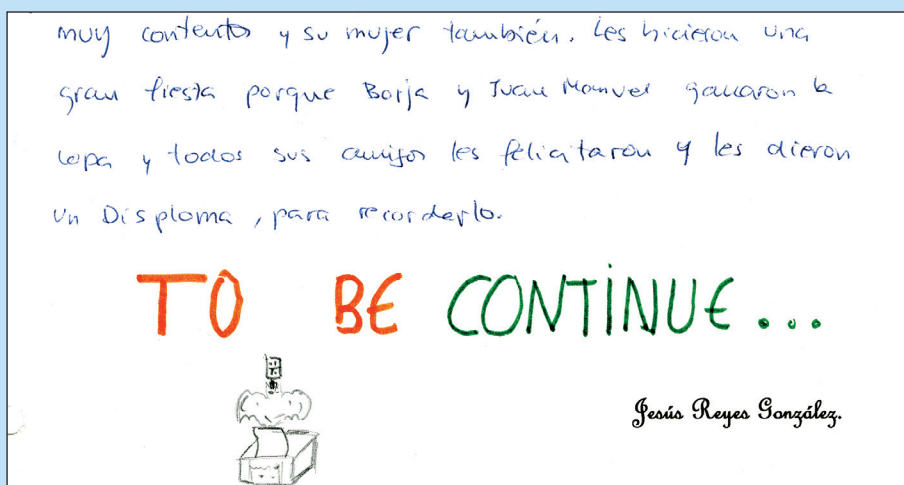 muy contento y su mujer también. Les hicieron una
gran fiesta porque Borja y Juan Manuel ganaron la
copa y todos sus amigos les felicitaron y les dieron
un Disploma, para recordarlo.
TO BE CONTINUE...
Jesús Reyes González.